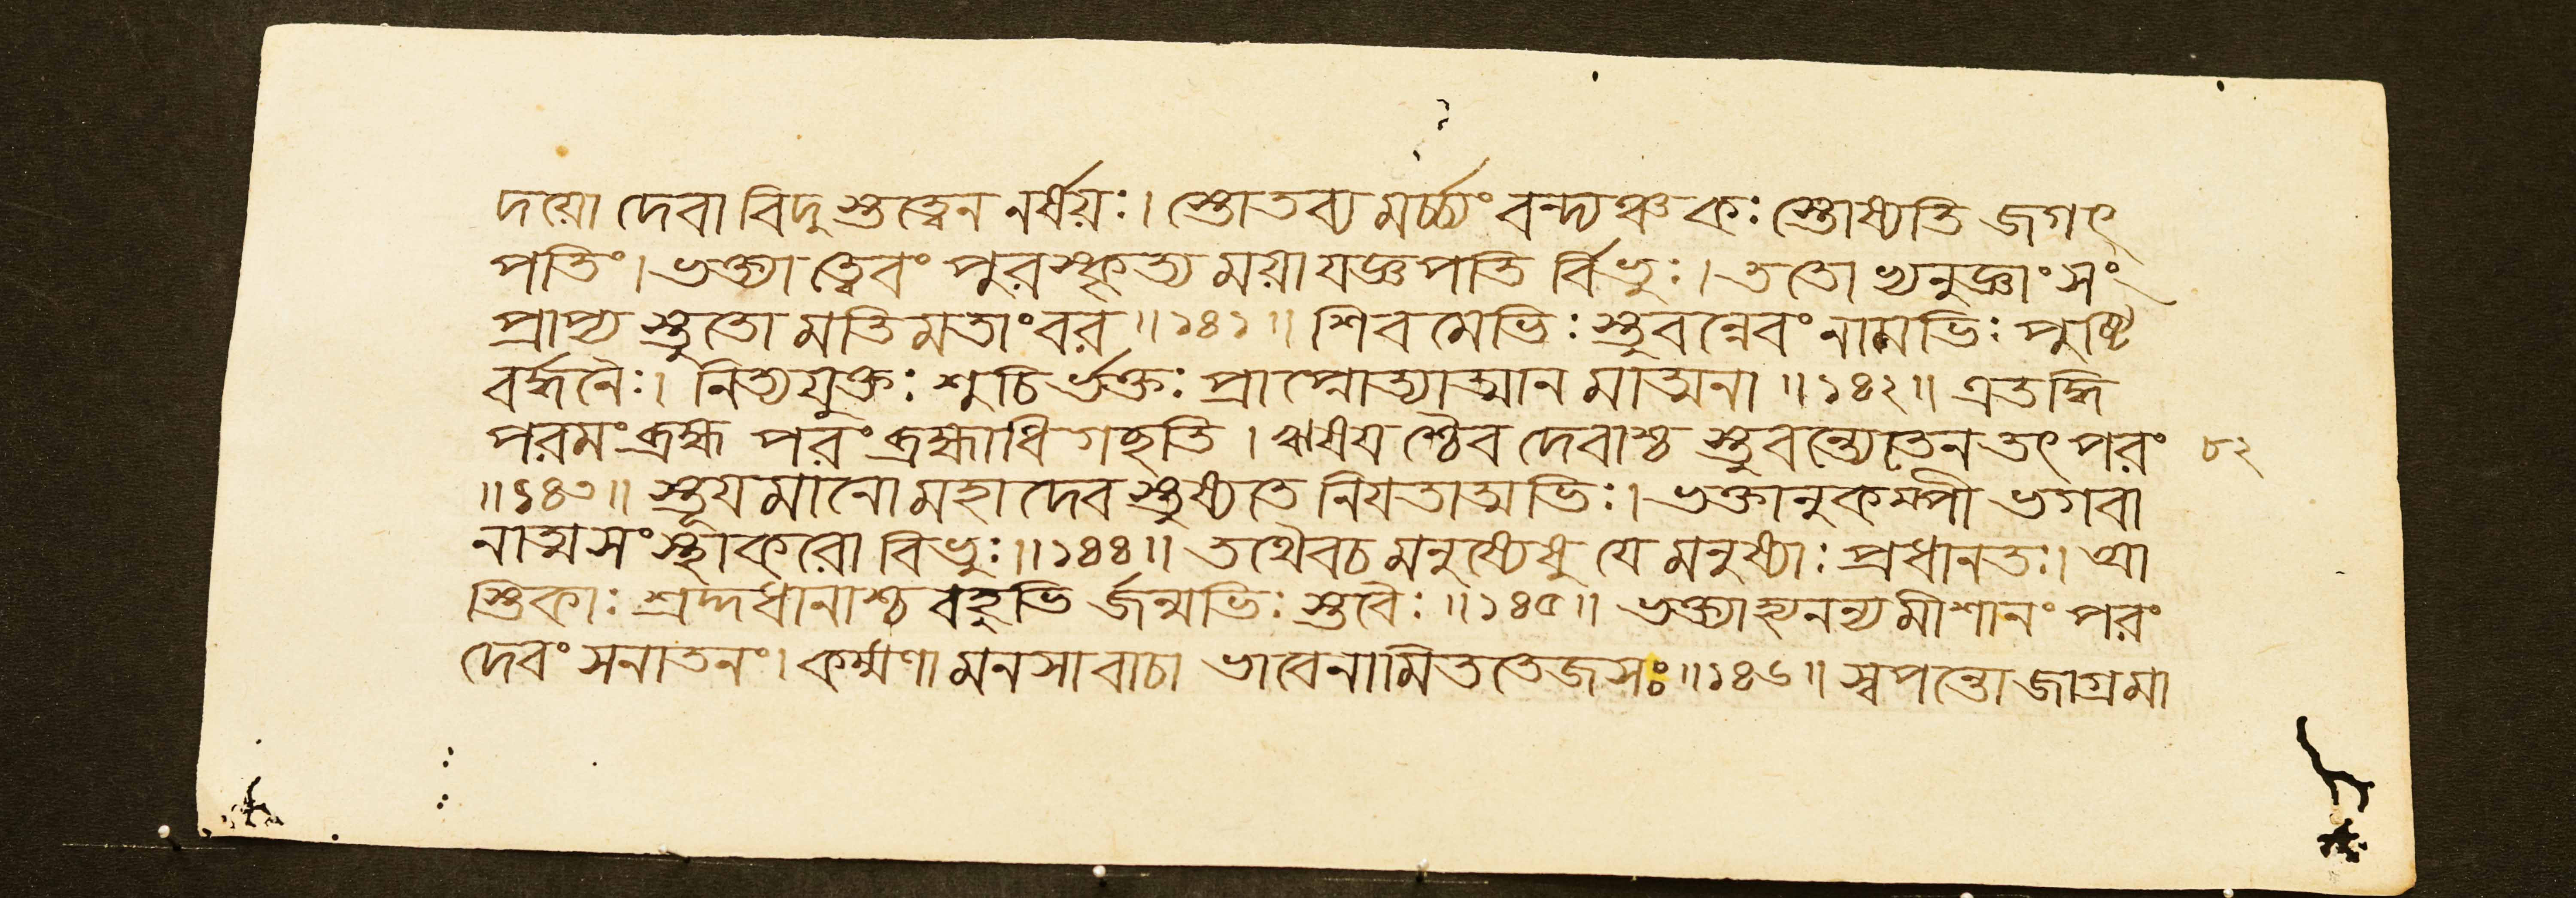 দয়ো দেবা বিদুস্তত্ত্বেন নর্ষয়ঃ। স্তোতব্যমর্চ্চ্যং বন্দ্যঞ্চ কঃ স্তোষ্যতি জগৎ
পতিং। ভক্ত্যা ত্বেবং পুরস্কৃত্য ময়া যজ্ঞপতি র্বিভুঃ। ততোভ্যনুজ্ঞাং সং
প্রাপ্য স্তুতো মতিমতাং বর॥১৪১॥ শিবমেভিঃ স্তুবন্নেবং নামভিঃ পুষ্টি
বর্দ্ধনৈঃ। নিত্যযুক্তঃ শুচি র্ভক্তঃ প্রাপ্নোত্যাত্মান মাত্মনা॥১৪২॥ এতদ্ধি
পরমং ব্রহ্ম পরং ব্রহ্মাধিগছতি। ঋষয শ্চৈব দেবাশ্চ স্তুবন্ত্যেতেন তৎপরং ৮২
॥১৪৩॥ স্তূযমানো মহাদেব স্তুষ্যতে নিযতাত্মভিঃ। ভক্তানুকম্পী ভগবা
নাত্মসংস্থাকরো বিভুঃ॥১৪৪॥ তথৈবচ মনুষ্যেষু যে মনুষ্যাঃ প্রধানতঃ। আ
স্তিকাঃ শ্রদ্দধানাশ্চ বহুভি র্জন্মভিঃ স্তবৈঃ॥১৪৫॥ ভক্ত্যাহ্যনন্যমীশানং পরং
দেবং সনাতনং। কর্ম্মণা মনসা বাচা ভাবেনামিততেজসঃ॥১৪৬॥ স্বপন্তো জাগ্রমা